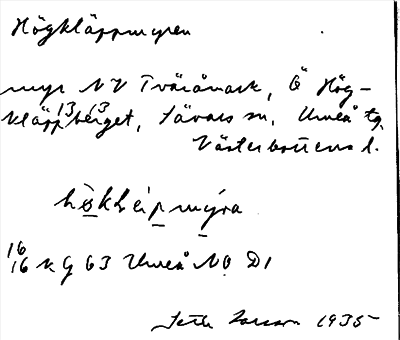 Högkläppmyren
myr NV Tväråmark, Ö Hög-
kläppberget, Sävars sn, Umeå tg.
13 63
Västerbottens l.
hö̱kḻeip̱myṟa
16
16 k G 63 Umeå NO D1
Larsson 1935